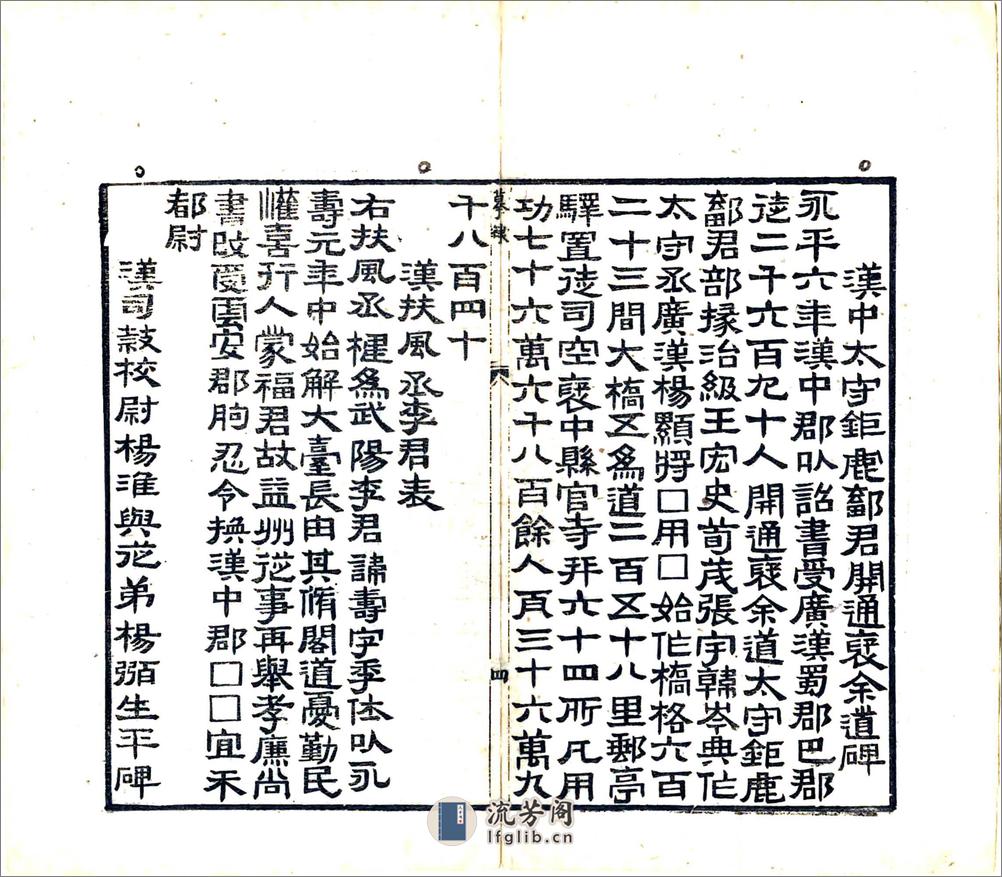 漢中太守鉅鹿鄐君開通褒余道碑
永平六年漢中郡㕥詔書受廣漢蜀郡巴郡
徒二千六百九十人開通褒余道太守鉅鹿
鄐君部掾治級王宏史荀茂張宇韓岑典作
太守丞廣漢楊顯將□用□始作橋格六百
二十三間大橋五為道二百五十八里郵亭
驛置徒司空褒中縣官寺并六十四所凡用
功七十六萬六千八百餘人瓦三十六萬九
四
千八百四十
漢扶風丞李君表
右扶風丞楗為武陽李君諱壽字季㐲㕥永
壽元年中始解大臺長由其脩閣道憂勤民
懽喜行人蒙福君故益州從事再舉孝廉尚
書改受雲安郡朐忍令換漢中郡□□宜禾
都尉
漢司隸校尉楊淮與從弟楊弼生平碑
流芳阁
lfglib.cn